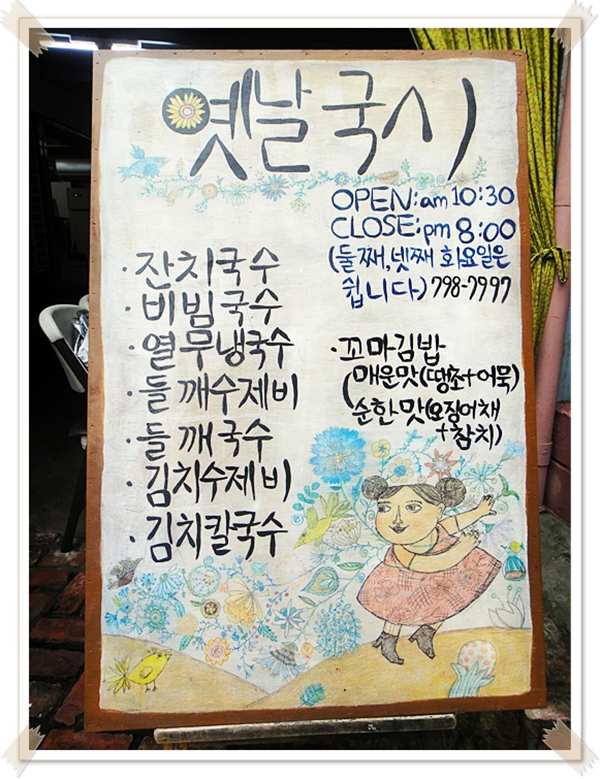 옛날국시
OPEN:am10:30
CLOSE:pm 8:00
(둘째,넷째 화요일은
쉽니다) 798-7997
·잔치국수
·비빔국수
·열무냉국수
·들깨수제비
·들깨국수
·김치수제비
·김치칼국수
·꼬마김밥
(매운맛(땡초+어묵)
순한맛(오징어채
+참치)